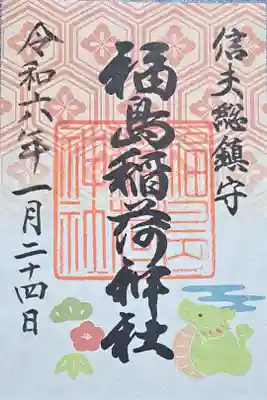 信夫総鎮守
福島稲荷神社
令和六年一月二十四日
福島稲荷神社